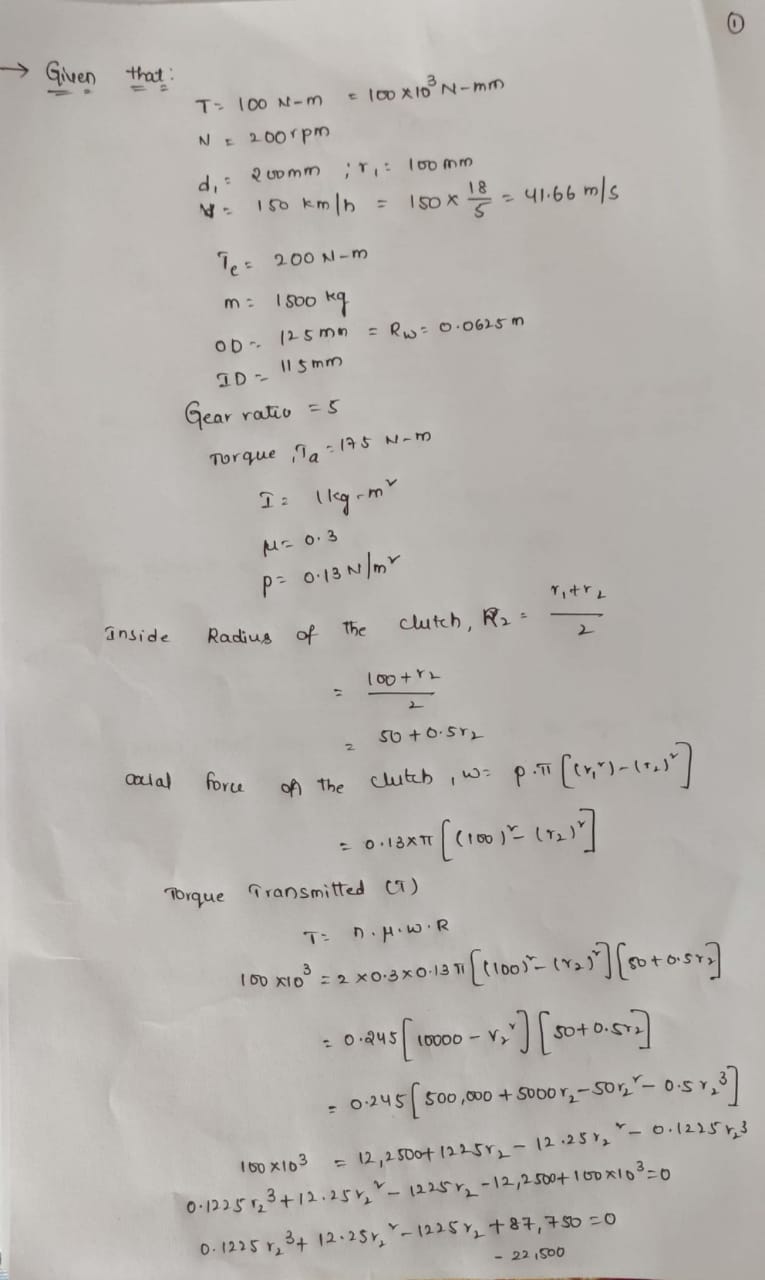 ①
→ Given that:
T = 100 N-m = 100 x 10³ N-mm
N = 200rpm
d₁ = 200mm ; r₁ = 100 mm
V = 150 km/h = 150 x 18/5 = 41.66 m/s
Te = 200 N-m
m = 1500 kg
OD = 125mm = Rw = 0.0625 m
ID = 115mm
Gear ratio = 5
Torque, Ta = 175 N-m
I = 1kg-m²
μ = 0.3
p = 0.13 N/m²
inside Radius of the clutch, R₂ = (r₁+r₂)/2
= (100+r₂)/2
= 50 + 0.5r₂
axial force on the clutch, w = p.π [(r₁²)-(r₂)²]
= 0.13xπ [(100)² - (r₂)²]
Torque Transmitted (T)
T = n.μ.w.R
100 x10³ = 2 x0.3x0.13π [(100)² - (r₂)²] [50+0.5r₂]
= 0.245 [10000 - r₂²] [50+0.5r₂]
= 0.245 [500,000 + 5000r₂ - 50r₂² - 0.5r₂³]
100x10³ = 12,2500+1225r₂ - 12.25r₂² - 0.1225r₂³
0.1225r₂³ + 12.25r₂² - 1225r₂ - 12,2500 + 100x10³ = 0
0.1225r₂³ + 12.25r₂² - 1225r₂ + 87,750 = 0
- 22,500